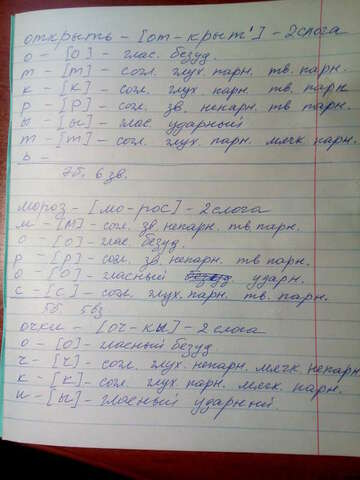 открыть - [от-крыт'] - 2 слога
о - [о] - глас. безуд.
т - [т] - согл. глух. парн. тв. парн.
к - [к] - согл. глух. парн. тв. парн
р - [р] - согл. зв. непарн. тв парн.
ы - [ы] - глас. ударный
т - [т] - согл. глух. парн. мягк. парн.
ь -
7б, 6 зв.
мороз - [мо-рос] - 2 слога
м - [м] - согл. зв. непарн. тв парн.
о - [о] - глас. безуд.
р - [р] - согл. зв. непарн. тв парн.
о - [о] - гласный ударн.
с - [с] - согл. глух. парн. тв. парн.
5б. 5 зв
очки - [оч-кы] - 2 слога
о - [о] - гласный безуд.
ч - [ч] - согл. глух. непарн. мягк. непарн
к - [к] - согл. глух. парн. мягк. парн.
и - [ы] - гласный ударный.